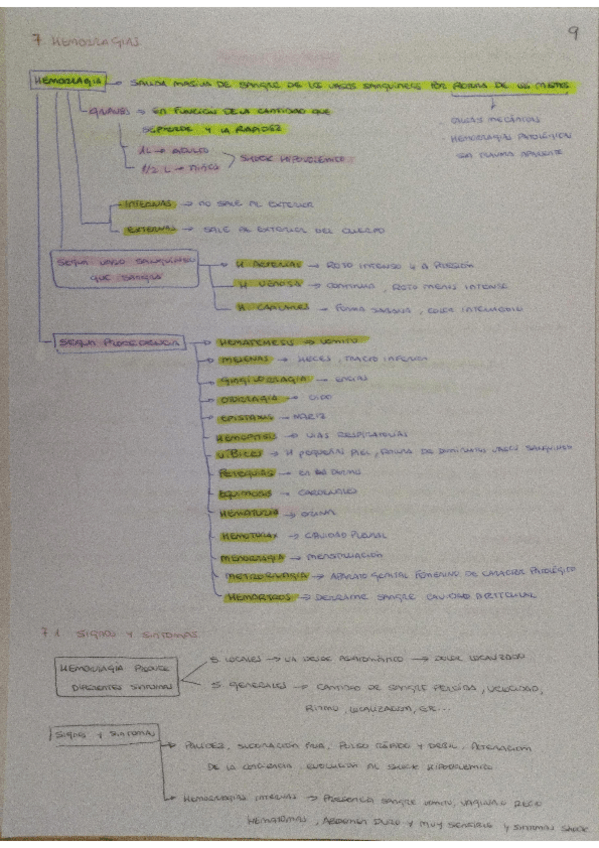 9
7. HEMORRAGIAS
HEMORRAGIA → SALIDA MASIVA DE SANGRE DE LOS VASOS SANGUINEOS POR ROTURA DE LOS MISMOS
GRAVES → EN FUNCIÓN DE LA CANTIDAD QUE
SE PIERDE Y LA RAPIDEZ
CAUSAS MECÁNICAS
HEMORRAGIAS PATOLÓGICAS
SIN TRAUMA APARENTE
1L → ADULTO
1/2 L → NIÑOS
SHOCK HIPOVOLÉMICO
INTERNAS → NO SALE AL EXTERIOR
EXTERNAS → SALE AL EXTERIOR DEL CUERPO
SEGÚN VASO SANGUINEO
QUE SANGRA
H. ARTERIAS → ROJO INTENSO Y A PRESIÓN
H. VENOSA → CONTINUA, ROJO MENOS INTENSO
H. CAPILARES → FORMA SABANA, COLOR INTERMEDIO
SEGÚN PROCEDENCIA
HEMATEMESIS → VOMITO
MELENAS → HECES, TRACTO INFERIOR
GINGIVORRAGIA → ENCIAS
OTORRAGIA → OIDO
EPISTAXIS → NARIZ
HEMOPTISIS → VIAS RESPIRATORIAS
→ H. PEQUEÑAS PIEL, ROTURA DE VASOS SANGUINEOS
PETEQUIAS →
EQUIMOSIS → CARDENALES
HEMATURIA → ORINA
HEMOTORAX → CAVIDAD PLEURAL
MENORRAGIA → MENSTRUACIÓN
METRORRAGIA → APARATO GENITAL FEMENINO DE CARACTER PATOLÓGICO
→ DERRAME SANGRE CAVIDAD ARTICULAR
7.1. SIGNOS Y SINTOMAS
HEMORRAGIA PRODUCE
DIFERENTES SINTOMAS
S. LOCALES → VA DESDE ASINTOMÁTICO → DOLOR LOCALIZADO
S. GENERALES → CANTIDAD DE SANGRE PERDIDA, VELOCIDAD,
RITMO, LOCALIZACIÓN, ...
SIGNOS Y SINTOMAS
PALIDEZ, SUDORACIÓN FRIA, PULSO RÁPIDO Y DEBIL, ALTERACIÓN
DE LA CONCIENCIA, EVOLUCIÓN AL SHOCK HIPOVOLEMICO
HEMORRAGIAS INTERNAS → PRESENCIA SANGRE VOMITO, VAGINAL O RECTO
HEMATOMAS, ABDOMEN DURO Y MUY SENSIBLE Y SINTOMAS SHOCK